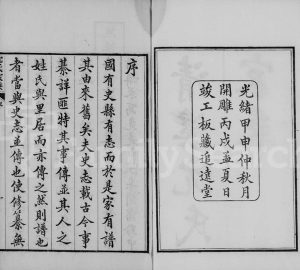 光緒甲申仲秋月
開雕丙戌孟夏日
竣工板藏追遠堂
序
國有史縣有志而於是家有譜
其由來舊矣夫史志載古今事
綦詳匪特其事傳並其人之
姓氏與里居而亦傳之然則譜也
者當與史志並傳也使修纂無